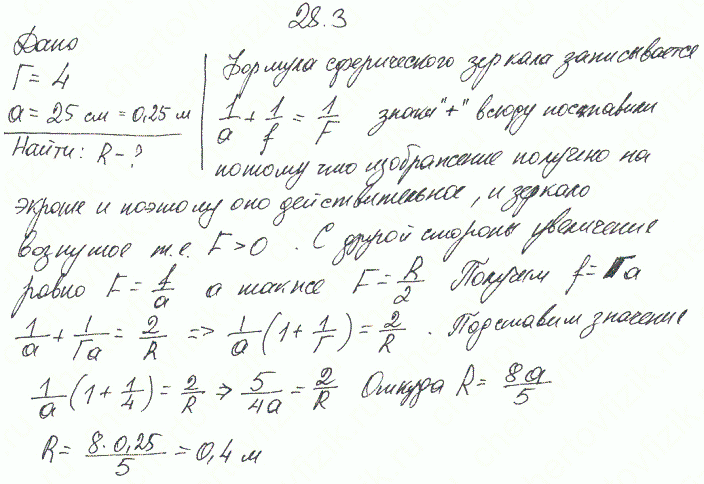 28.3
Дано
Г = 4
a = 25 см = 0,25 м
Найти: R - ?
Формула сферического зеркала записывается
1/a + 1/f = 1/F знаки "+" всюду поставили
потому что изображение получено на
экране и поэтому оно действительное, и зеркало
вогнутое т.е. F > 0. С другой стороны увеличение
равно Г = f/a а также F = R/2 Получим f = Гa
1/a + 1/Гa = 2/R => 1/a (1 + 1/Г) = 2/R. Подставим значение
1/a (1 + 1/4) = 2/R => 5/4a = 2/R Откуда R = 8a/5
R = 8·0,25/5 = 0,4 м